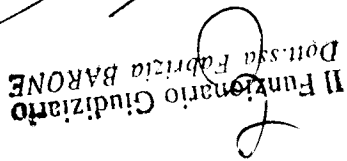 Il Funzionario Giudiziario
Dott.ssa Fabrizia BARONE